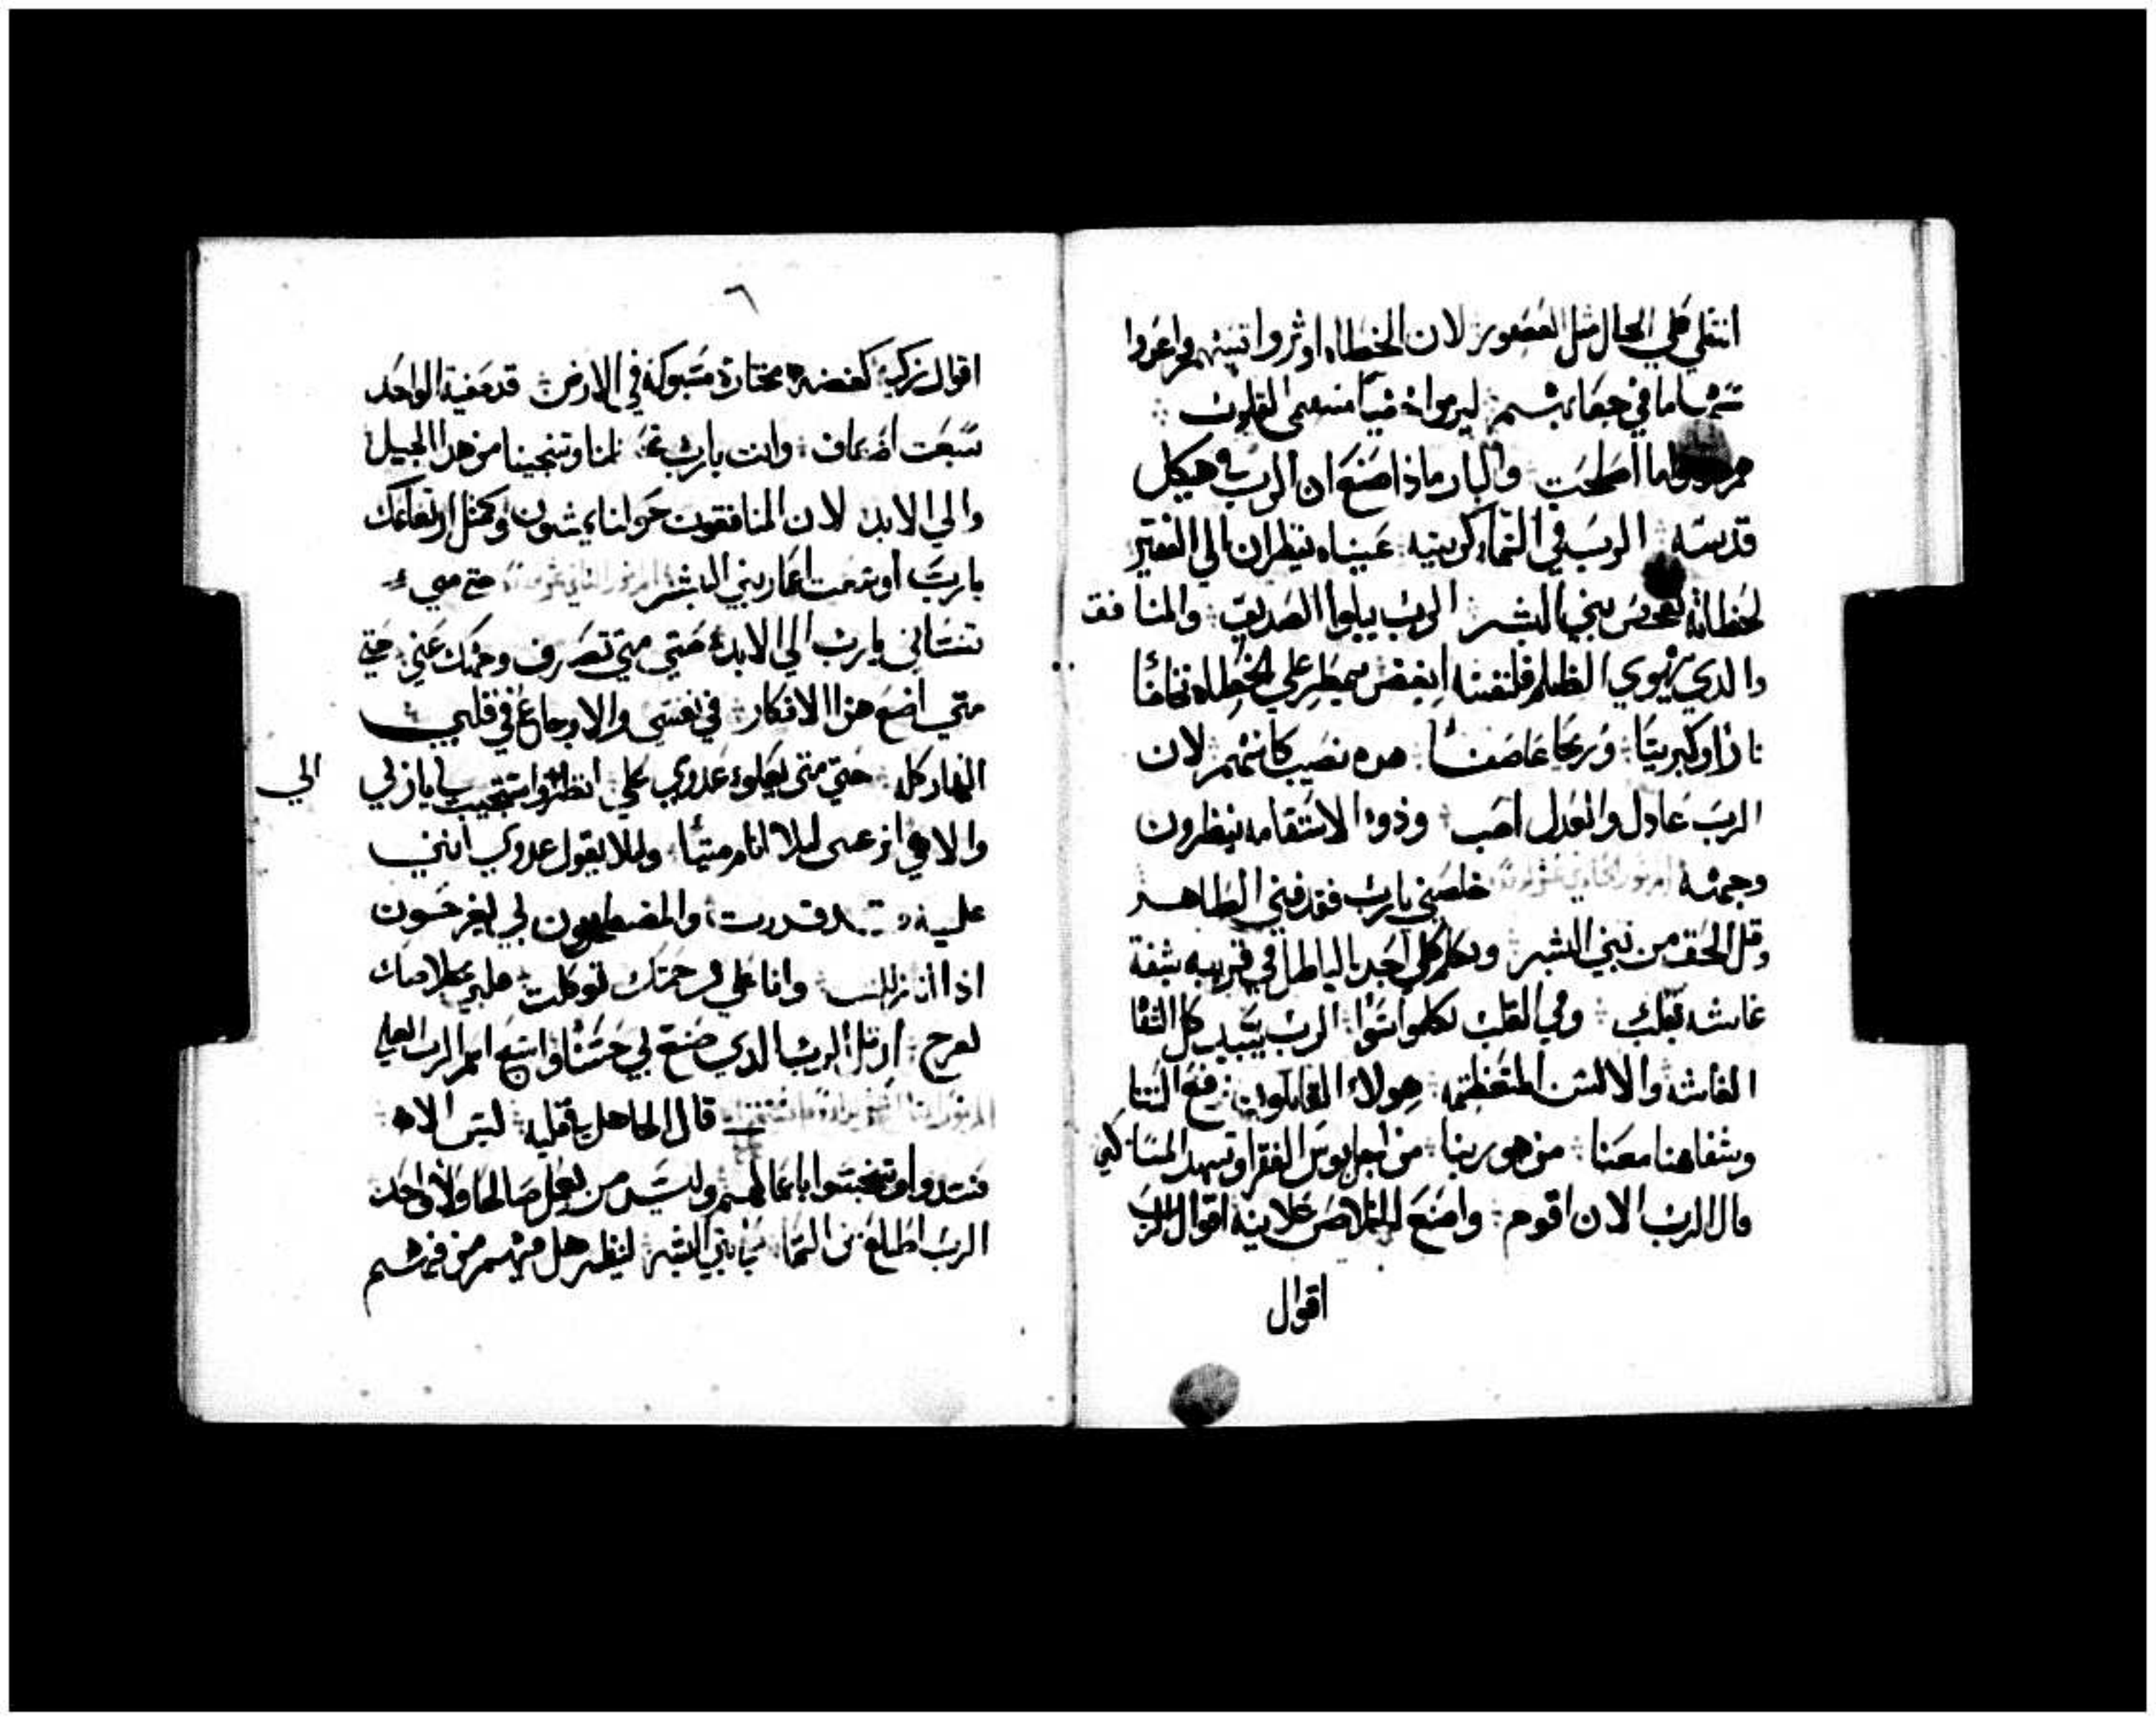 انتقلي علي الجبال مثل العصفور لان الخطاه اوثروا قسيهم واعدوا
سهاما في جعابهم ليرموا في مستقيمي القلوب
ما اصلحت والبار ماذا صنع ان الرب في هيكل
قدسه الرب في السما كرسيه عيناه ينظران الي الفقير
لحظاته تفحص بني البشر الرب يبلوا الصديق والمنافق
والدي يهوي الظلم فلنفسه ابغض يمطر علي الخطاه فخاخا
نارا وكبريتا وريحا عاصفا هده نصيب كاسهم لان
الرب عادل والعدل احب وذووا الاستقامه ينظرون
وجهه المزمور الحادي عشر خلصني يارب فقد فني الطاهر
وقل الحق من بني البشر وتكلم كل احد بالباطل في قريبه شفة
غاشه بقلب وفي القلب تكلموا سوا الرب يبيد كل الشفا
الغاشه والالسن المتعظمه هولاء القايلون نرفع السننا
وشفاهنا معنا من هو ربنا من اجل بوس الفقرا وتنهد المساكين
قال الرب الان اقوم واصنع الخلاص علانية اقوال الرب
اقوال
٦
اقوال زكيه كفضه مختارة مسبوكة في الارض قد صفية الواحد
سبعت اضعاف وانت يارب تخلصنا وتنجينا من هدا الجيل
والي الابد لان المنافقون حولنا يمشون وكمثل ارتفاعك
يارب اوسعت اعمار بني البشر المزمور الثاني عشر حتي متي
تنساني يارب الي الابد حتي متي تصرف وجهك عني حتي
متي اضع هذا الافكار في نفسي والاوجاع في قلبي
النهار كله حتي متي يعلوا عدوي علي انظر واستجيب يا ربي الي
والاهي انر عيني ليلا انام ميتا وليلا يقول عدوي انني
عليه قد قدرت والمضطهدون لي يفرحون
اذا ان زللت وانا علي رحمتك توكلت قلبي بخلاصك
يفرح ارتل للرب الدي صنع لي حسنا واسبح اسم الرب العلي
المزمور الثالث عشر قال الجاهل في قلبه ليس الاه
فسدوا وتنجسوا باعمالهم وليس من يعمل صالحا ولا واحد
الرب اطلع من السما علي بني البشر لينظر هل فيهم من فهم